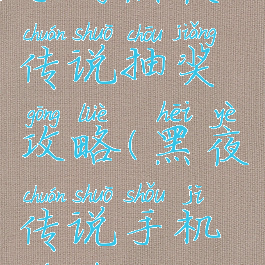 chuán shuō chōu jiǎng
传说抽奖
gōng lüè hēi yè
攻略(黑夜
chuán shuō shǒu jī
传说手机